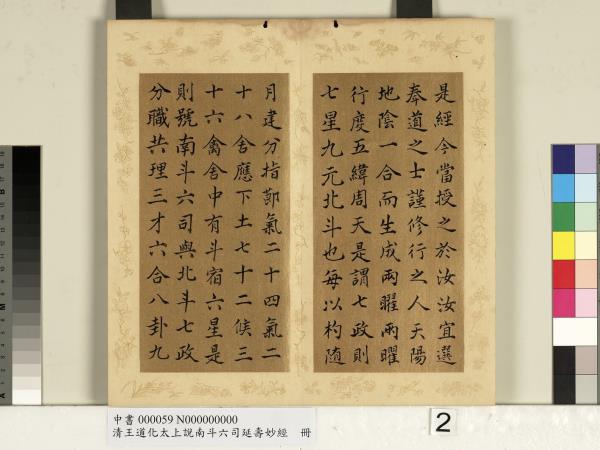 是經今當授之於汝汝宜選
奉道之士謹修行之人天陽
地陰一合而生成兩曜兩曜
行度五緯周天是謂七政則
七星九元北斗也每以杓隨
月建分指節氣二十四氣二
十八舍應下土七十二候三
十六禽舍中有斗宿六星是
則號南斗六司與北斗七政
分職共理三才六合八卦九
中書 000059 N000000000
清王道化太上說南斗六司延壽妙經 冊
2